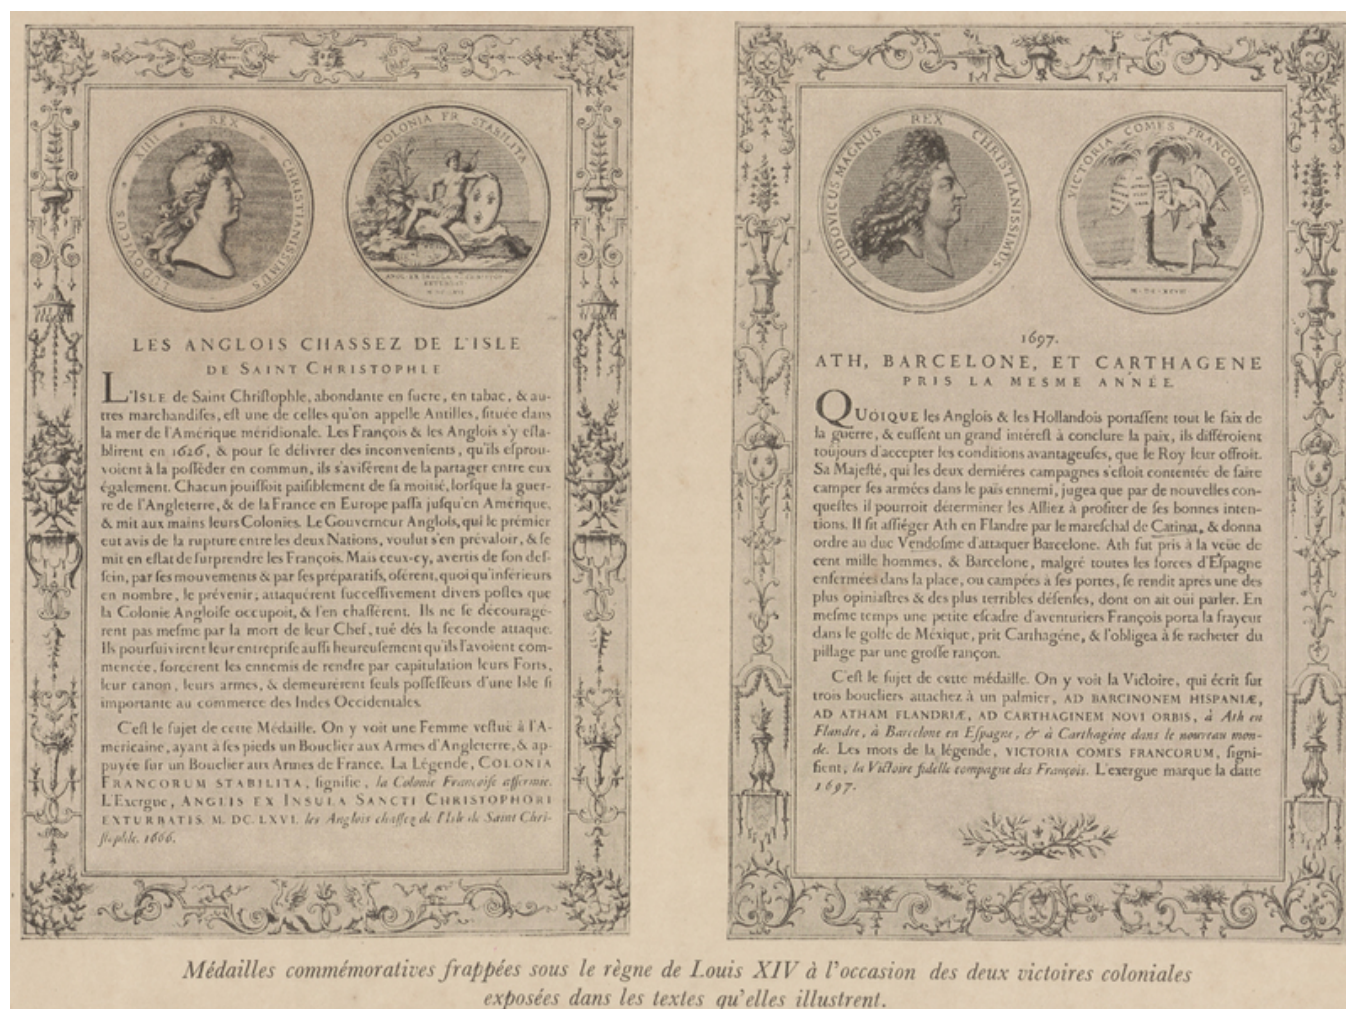 LUDOVICUS XIIII REX CHRISTIANISSIMUS
COLONIA FR. STABILITA
LES ANGLOIS CHASSEZ DE L'ISLE
DE SAINT CHRISTOPHLE
L'ISLE de Saint Chriſtophle, abondante en ſucre, en tabac, & au-
tres marchandiſes, eſt une de celles qu'on appelle Antilles, ſituée dans
la mer de l'Amérique méridionale. Les François & les Anglois s'y eſta-
blirent en 1626, & pour ſe délivrer des inconvenients, qu'ils eſprou-
voient à la poſſéder en commun, ils s'aviſérent de la partager entre eux
également. Chacun jouiſſoit paiſiblement de ſa moitié, lorſque la guer-
re de l'Angleterre, & de la France en Europe paſſa juſqu'en Amérique,
& mit aux mains leurs Colonies. Le Gouverneur Anglois, qui le prémier
eut avis de la rupture entre les deux Nations, voulut s'en prévaloir, & ſe
mit en eſtat de ſurprendre les François. Mais ceux-cy, avertis de ſon deſ-
ſein, par ſes mouvements & par ſes préparatifs, oſérent, quoi qu'inférieurs
en nombre, le prévenir; attaquérent ſucceſſivement divers poſtes que
la Colonie Angloiſe occupoit, & l'en chaſſérent. Ils ne ſe découragé-
rent pas meſme par la mort de leur Chef, tué dés la ſeconde attaque.
Ils pourſuivirent leur entrepriſe auſſi heureuſement qu'ils l'avoient com-
mencée, forcérent les ennemis de rendre par capitulation leurs Forts,
leur canon, leurs armes, & demeurérent ſeuls poſſeſſeurs d'une Iſle ſi
importante au commerce des Indes Occidentales.
C'eſt le ſujet de cette Médaille. On y voit une Femme veſtuë à l'A-
méricaine, ayant à ſes pieds un Bouclier aux Armes d'Angleterre, & ap-
puyée ſur un Bouclier aux Armes de France. La Légende, COLONIA
FRANCORUM STABILITA, ſignifie, la Colonie Françoiſe affermie.
L'Exergue, ANGLIS EX INSULA SANCTI CHRISTOPHORI
EXTURBATIS. M. DC. LXVI. les Anglois chaſſez de l'Iſle de Saint Chri-
ſtophle. 1666.
LUDOVICUS MAGNUS REX CHRISTIANISSIMUS.
VICTORIA COMES FRANCORUM
1697.
ATH, BARCELONE, ET CARTHAGENE
PRIS LA MESME ANNÉE
QUOIQUE les Anglois & les Hollandois portaſſent tout le faix de
la guerre, & euſſent un grand intéreſt à conclure la paix, ils différoient
toujours d'accepter les conditions avantageuſes, que le Roy leur offroit.
Sa Majeſté, qui les deux derniéres campagnes s'eſtoit contentée de faire
camper ſes armées dans le païs ennemi, jugea que par de nouvelles con-
queſtes il pourroit déterminer les Alliez à profiter de ſes bonnes inten-
tions. Il fit aſſiéger Ath en Flandre par le mareſchal de Catinat, & donna
ordre au duc Vendoſme d'attaquer Barcelone. Ath fut pris à la veüe de
cent mille hommes, & Barcelone, malgré toutes les forces d'Eſpagne
enfermées dans la place, ou campées à ſes portes, ſe rendit aprés une des
plus opiniaſtres & des plus terribles défenſes, dont on ait oüi parler. En
meſme temps une petite eſcadre d'aventuriers François porta la frayeur
dans le golfe de Méxique, prit Carthagéne, & l'obligea à ſe racheter du
pillage par une groſſe rançon.
C'eſt le ſujet de cette médaille. On y voit la Victoire, qui écrit ſur
trois boucliers attachez à un palmier, AD BARCINONEM HISPANIÆ,
AD ATHAM FLANDRIÆ, AD CARTHAGINEM NOVI ORBIS, à Ath en
Flandre, à Barcelone en Eſpagne, & à Carthagéne dans le nouveau mon-
de. Les mots de la légende, VICTORIA COMES FRANCORUM, ſigni-
fient, la Victoire fidelle compagne des François. L'exergue marque la datte
1697.
Médailles commémoratives frappées sous le règne de Louis XIV à l'occasion des deux victoires coloniales
exposées dans les textes qu'elles illustrent.